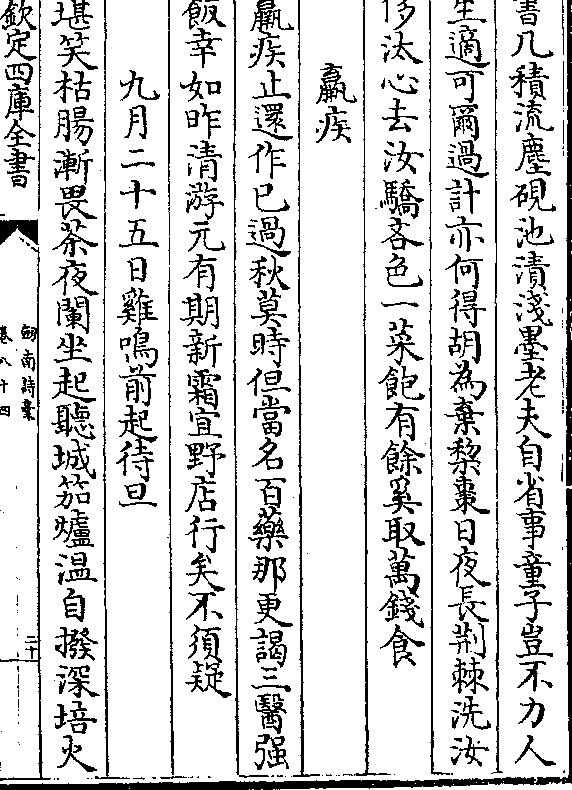 書几積流塵硯池漬淺墨老夫自省事童子豈不力人
生適可爾過計亦何得胡為棄棃棗日夜長荆棘洗汝
侈汰心去汝驕吝色一菜飽有餘奚取萬錢食
羸疾
羸疾止還作已過秋莫時但當名百藥那更謁三醫强
飯幸如昨清游元有期新霜宜野店行矣不須疑
九月二十五日雞鳴前起待旦
堪笑枯腸漸畏茶夜闌坐起聽城笳爐温自撥深培火
欽定四庫全書
劒南詩稾
卷八十四
二十